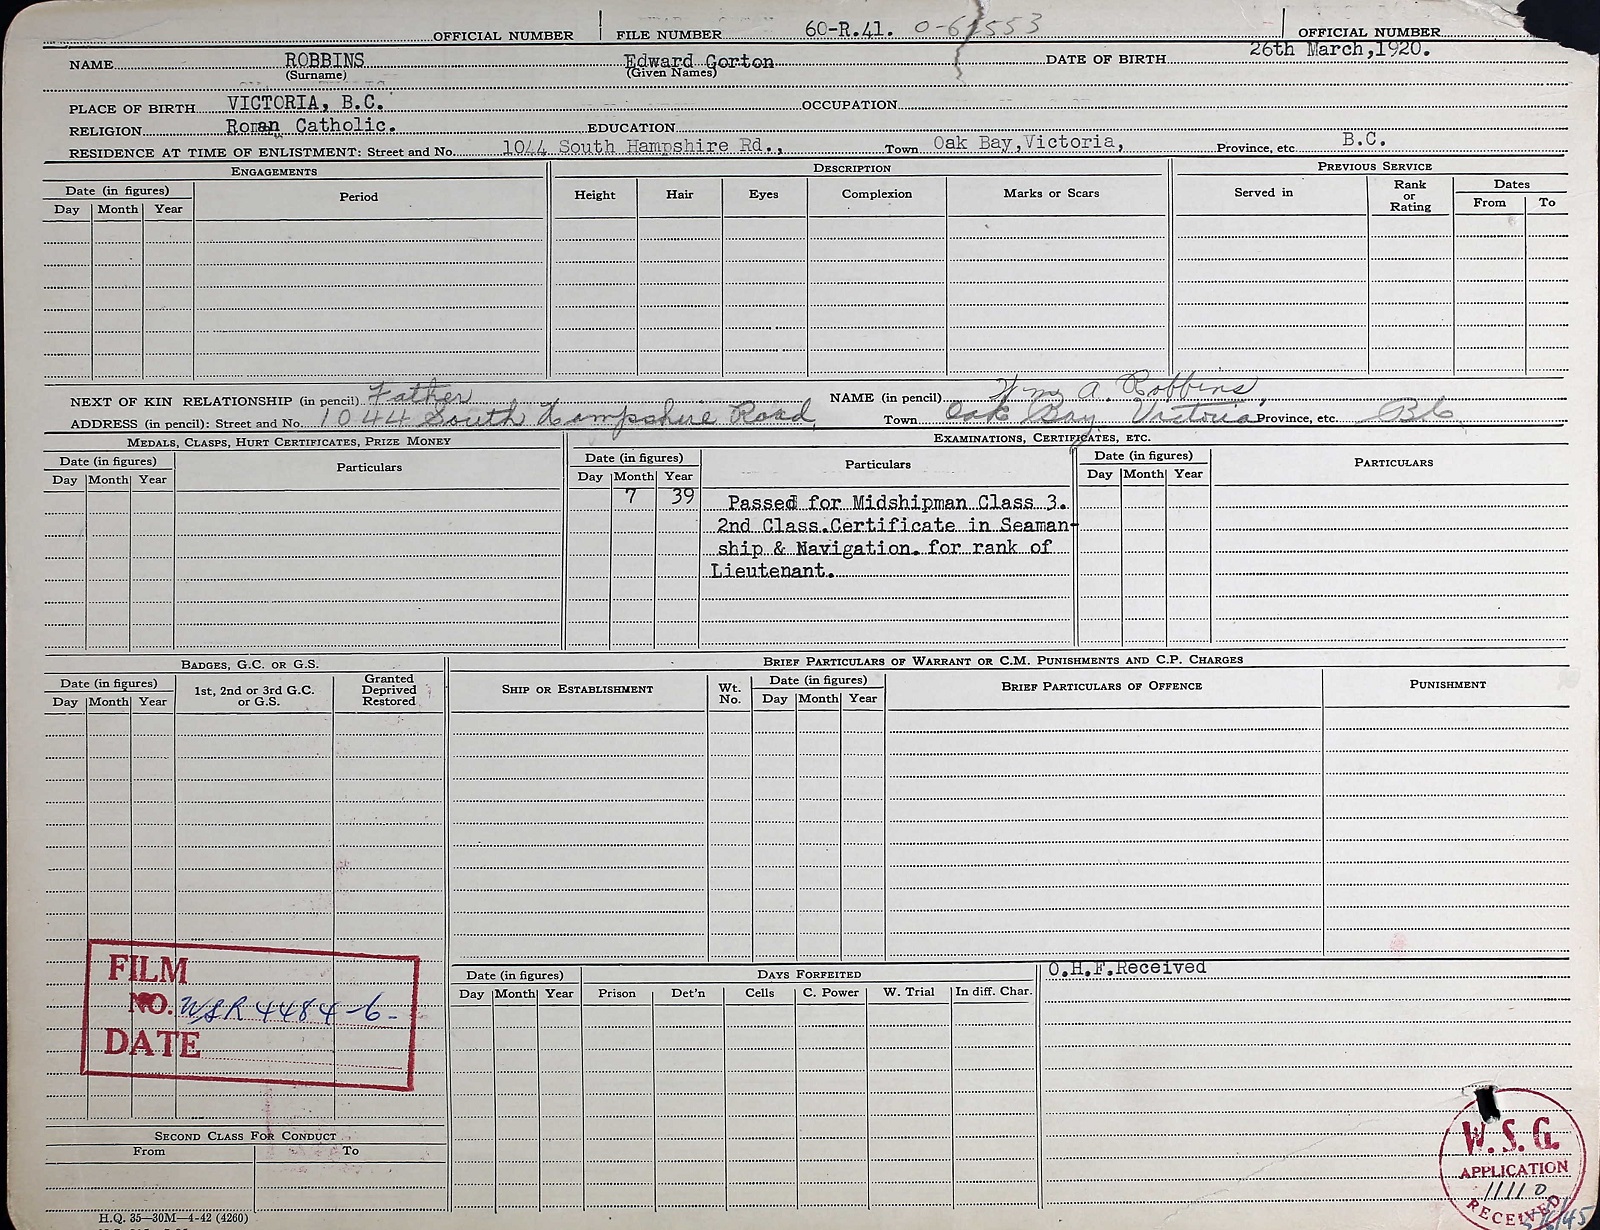 OFFICIAL NUMBER FILE NUMBER 60-R.41. OFFICIAL NUMBER
NAME ROBBINS Edward Gorton DATE OF BIRTH 26th March,1920.
(Surname) (Given Names)
PLACE OF BIRTH VICTORIA, B.C. OCCUPATION
RELIGION Roman Catholic. EDUCATION
RESIDENCE AT TIME OF ENLISTMENT: Street and No. 1044 South Hampshire Rd., Town Oak Bay,Victoria, Province, etc B.C.
ENGAGEMENTS DESCRIPTION PREVIOUS SERVICE
Date (in figures) Period Height Hair Eyes Complexion Marks or Scars Served in Rank or Rating Dates
Day Month Year From To
NEXT OF KIN RELATIONSHIP (in pencil) Father NAME (in pencil) Wm. A. Robbins,
ADDRESS (in pencil): Street and No. 1044 South Hampshire Road, Town Oak Bay Victoria Province, etc. BC
MEDALS, CLASPS, HURT CERTIFICATES, PRIZE MONEY EXAMINATIONS, CERTIFICATES, ETC.
Date (in figures) Particulars Date (in figures) Particulars Date (in figures) PARTICULARS
Day Month Year Day Month Year Day Month Year
7 39 Passed for Midshipman Class 3.
2nd Class.Certificate in Seaman-
ship & Navigation. for rank of
Lieutenant.
BADGES, G.C. OR G.S. BRIEF PARTICULARS OF WARRANT OR C.M. PUNISHMENTS AND C.P. CHARGES
Date (in figures) 1st, 2nd or 3rd G.C. or G.S. Granted Deprived Restored SHIP OR ESTABLISHMENT Wt. No. Date (in figures) BRIEF PARTICULARS OF OFFENCE PUNISHMENT
Day Month Year Day Month Year
FILM
NO. WSR 4484-6-
DATE
Date (in figures) DAYS FORFEITED O.H.F.Received
Day Month Year Prison Det'n Cells C. Power W. Trial In diff. Char.
SECOND CLASS FOR CONDUCT
From To
W.S.G.
APPLICATION
11110
RECEIVED
H.Q. 35—30M—4-42 (4260)